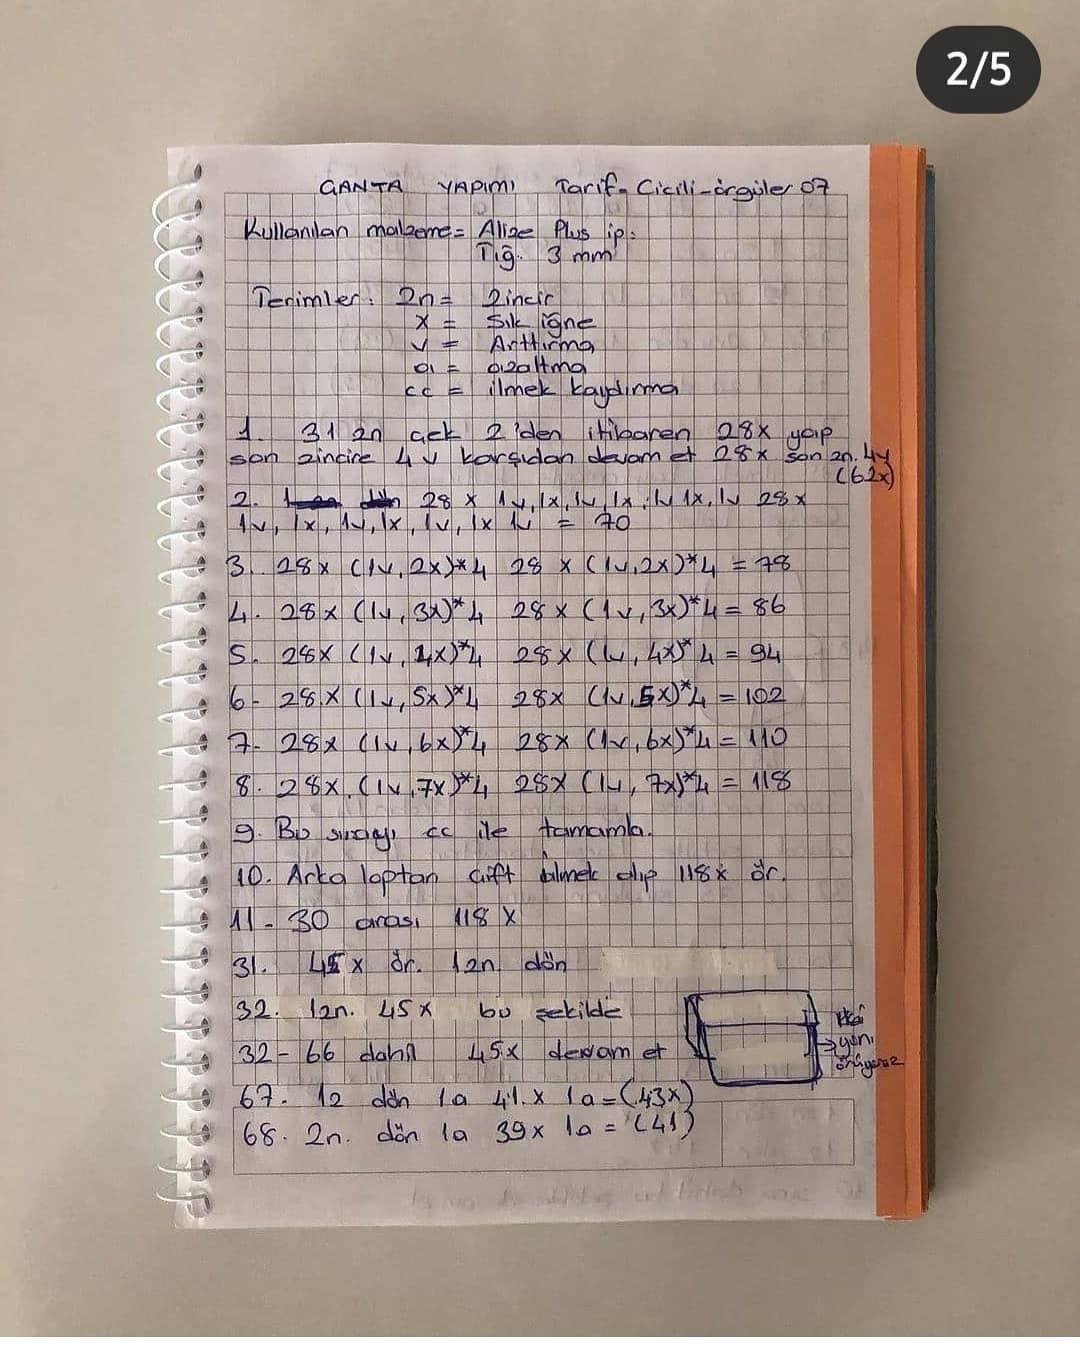 2/5
ÇANTA YAPIMI Tarif= Cicili-örgüler 07
Kullanılan malzeme= Alize Plus ip.
Tığ. 3 mm
Terimler: Zn= Zincir
X = Sık iğne
v = Arttırma
a = azaltma
cc = ilmek kaydırma
1. 31 zn çek 2'den itibaren 28x yap
son zincire 4v karşıdan devam et 28x son zn. 4v
(62x)
2. 28 x 1v, 1x, 1v, 1x, 1v 1x, 1v 28x
1v, 1x, 1v, 1x, 1v, 1x 1v = 70
3. 28x (1v, 2x)*4 28 x (1v, 2x)*4 = 78
4. 28x (1v, 3x)*4 28x (1v, 3x)*4= 86
5. 28x (1v, 4x)*4 28x (1v, 4x)*4 = 94
6- 28.x (1v, 5x)*4 28x (1v, 5x)*4 = 102
7- 28x (1v, 6x)*4 28x (1v, 6x)*4 = 110
8. 28x. (1v, 7x)*4 28x (1v, 7x)*4 = 118
9. Bu sırayı cc ile tamamla.
10. Arka loptan çift ilmek alıp 118x ör.
11-30 arası 118 X
31. 45x ör. 1zn dön
32. 1zn. 45x bu şekilde
32-66 dahil 45x devam et
iki
yanı
örüyoruz
67. 1z dön 1a 41.x 1a=(43x)
68. zn. dön 1a 39x 1a = (41)